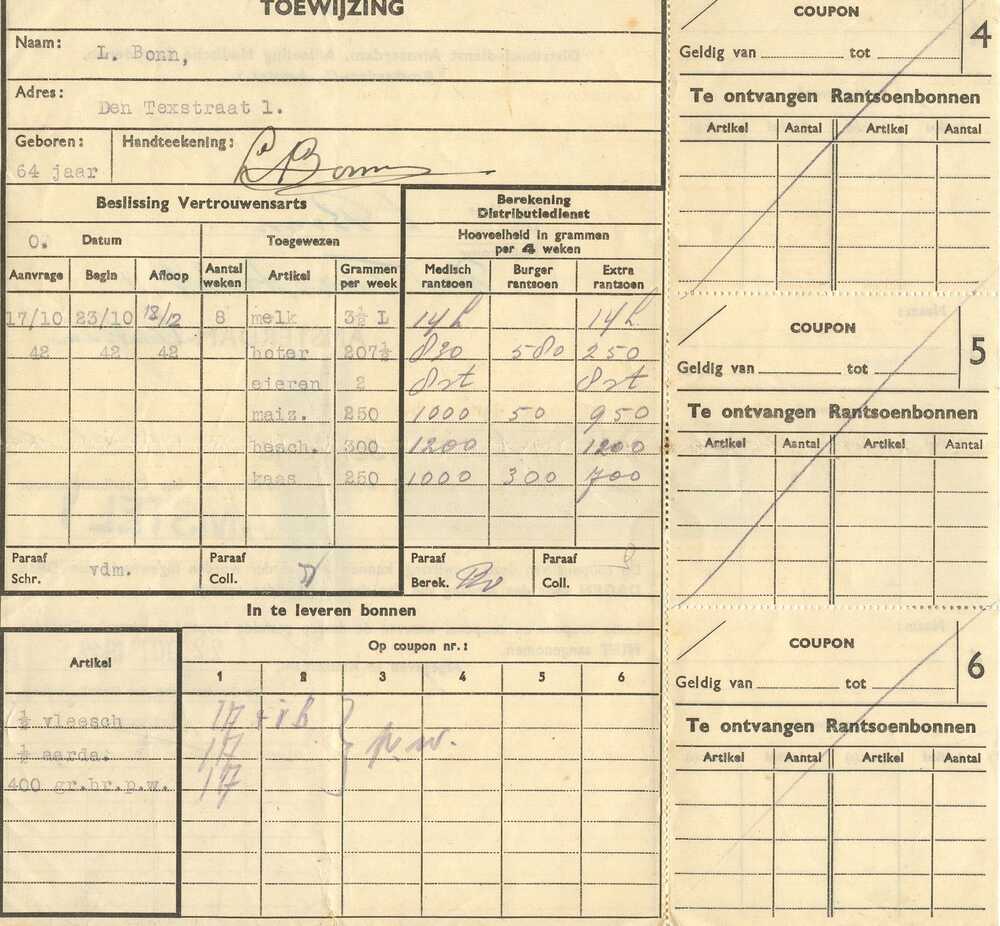 TOEWIJZING
Naam: L. Bonn,
Adres: Den Texstraat 1.
Geboren: 64 jaar Handteekening: L Bonn
Beslissing Vertrouwensarts
Berekening Distributiedienst
0. Datum Toegewezen
Hoeveelheid in grammen per 4 weken
Aanvrage Begin Afloop Aantal weken Artikel Grammen per week Medisch rantsoen Burger rantsoen Extra rantsoen
17/10 23/10 18/12 8 melk 3½ L 14 L 14 L
42 42 42 boter 207½ 830 580 250
eieren 2 8 st 8 st
maiz. 250 1000 50 950
besch. 300 1200 1200
kaas 250 1000 300 700
Paraaf Schr. vdm. Paraaf Coll. Paraaf Berek. Paraaf Coll.
In te leveren bonnen
Artikel Op coupon nr.:
1 2 3 4 5 6
½ vleesch 17
½ aarda. 17 p.w.
400 gr.br.p.w. 17
COUPON 4
Geldig van tot
Te ontvangen Rantsoenbonnen
Artikel Aantal Artikel Aantal
COUPON 5
Geldig van tot
Te ontvangen Rantsoenbonnen
Artikel Aantal Artikel Aantal
COUPON 6
Geldig van tot
Te ontvangen Rantsoenbonnen
Artikel Aantal Artikel Aantal